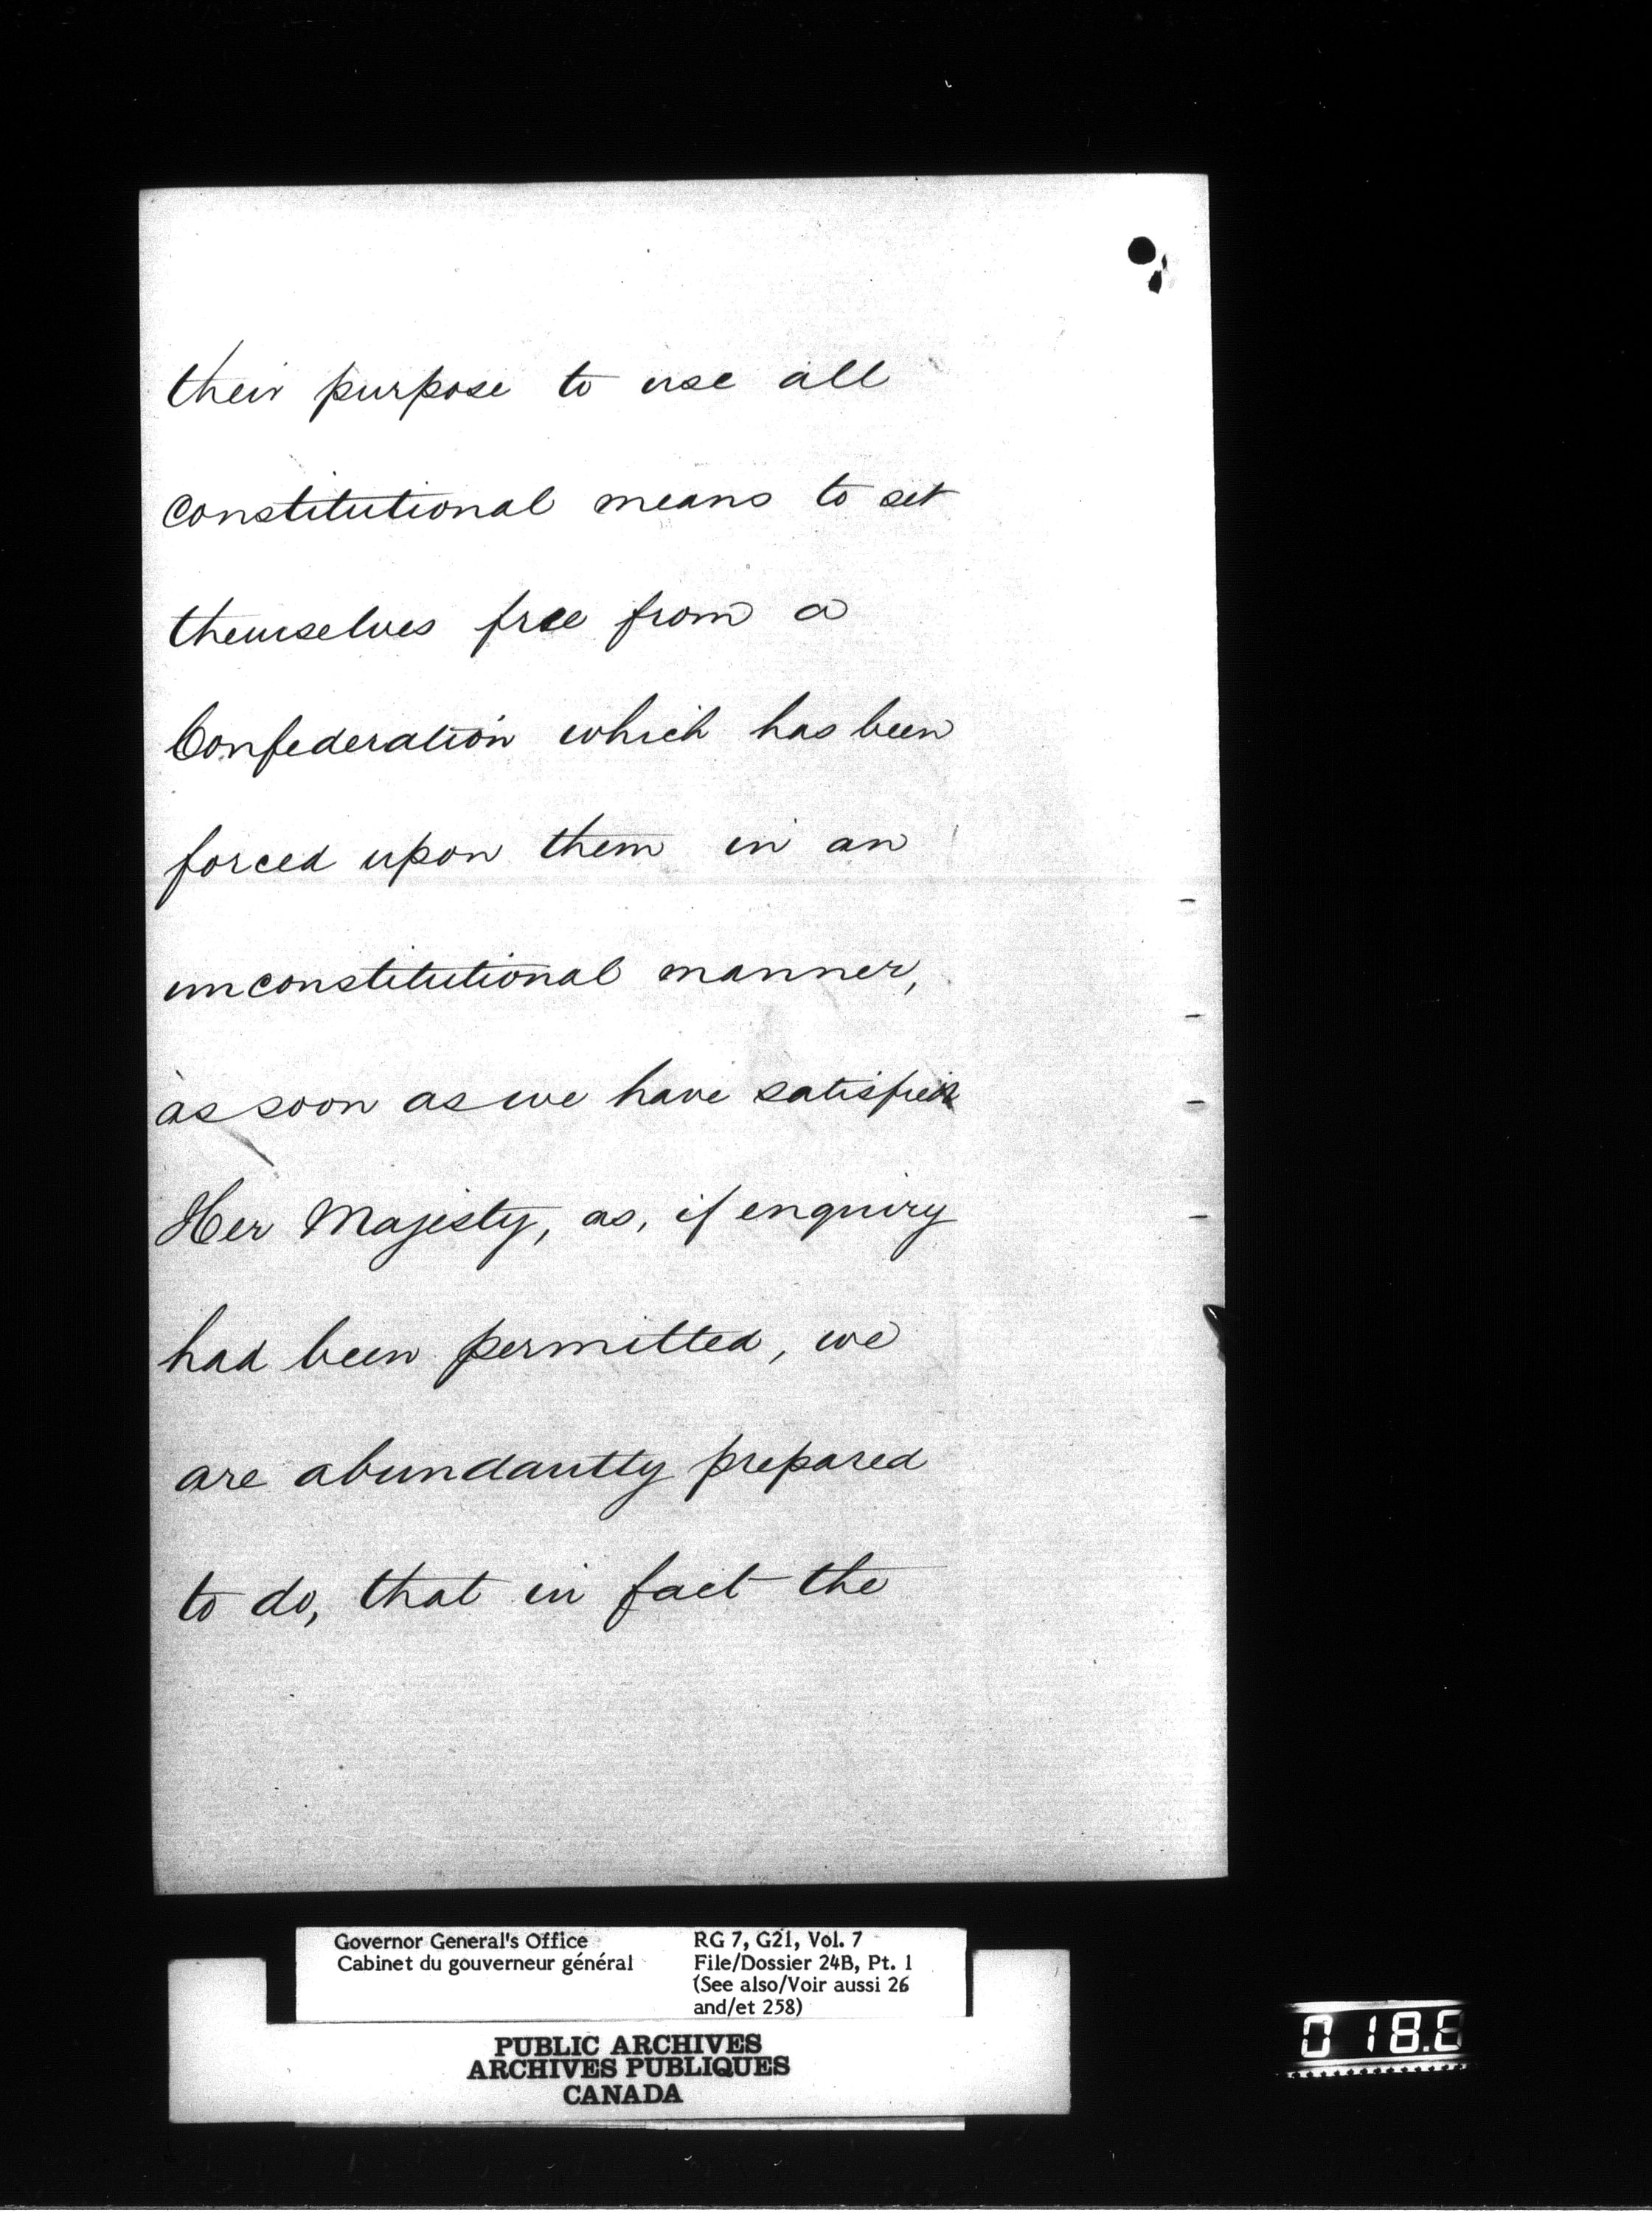 their purpose to use all
constitutional means to set
themselves free from a
Confederation which has been
forced upon them in an
unconstitutional manner,
as soon as we have satisfied
Her Majesty, as, if enquiry
had been permitted, we
are abundantly prepared
to do, that in fact the
Governor General's Office
Cabinet du gouverneur général
RG 7, G21, Vol. 7
File/Dossier 24B, Pt. 1
(See also/Voir aussi 26
and/et 258)
PUBLIC ARCHIVES
ARCHIVES PUBLIQUES
CANADA